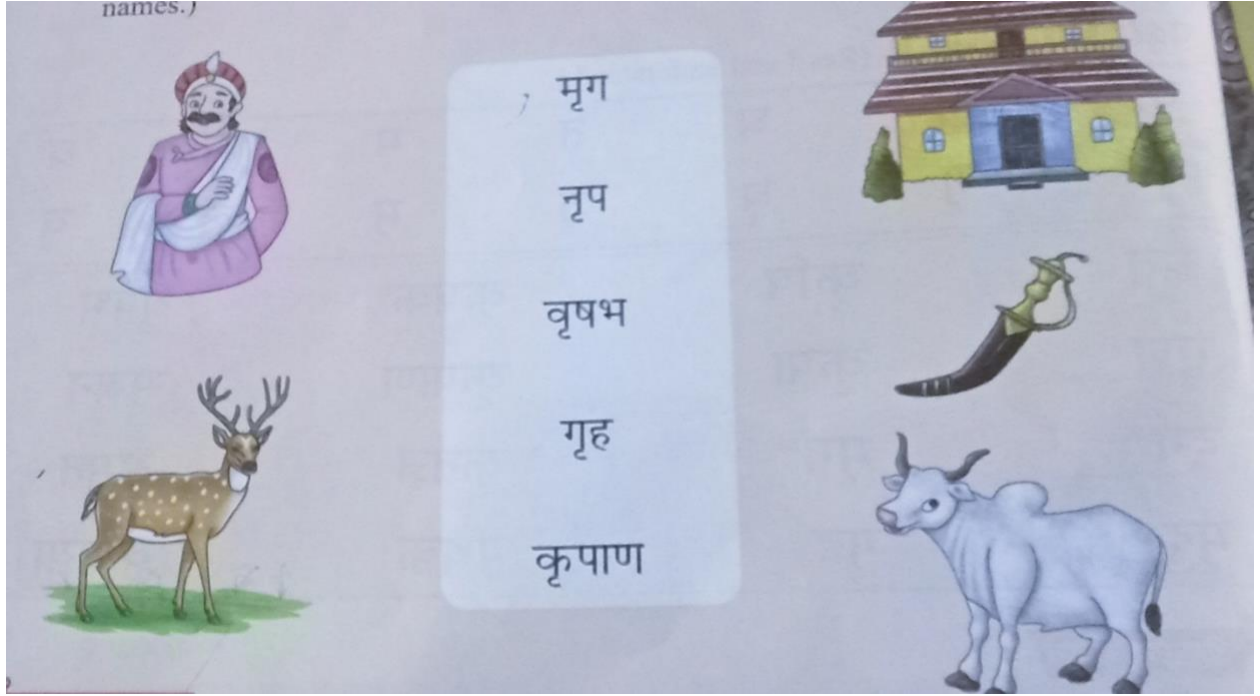 names.)
मृग
नृप
वृषभ
गृह
कृपाण